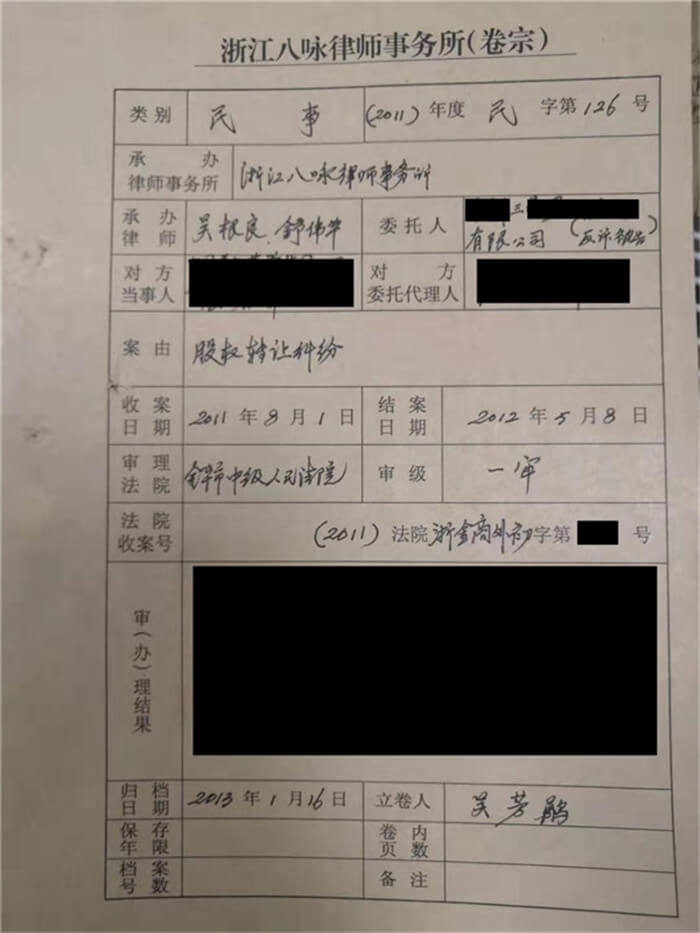 浙江八咏律师事务所(卷宗)
类别 民事 (2011)年度 民 字第126号
承办律师事务所 浙江八咏律师事务所
承办律师 吴根良、舒伟华 委托人 三 有限公司(反诉被告)
对方当事人 对方委托代理人
案由 股权转让纠纷
收案日期 2011年8月1日 结案日期 2012年5月8日
审理法院 金华市中级人民法院 审级 一审
法院收案号 (2011)法院浙金商外初字第 号
审(办)理结果
归档日期 2013年1月16日 立卷人 吴芳鹃
保存年限 卷内页数
档案号数 备注